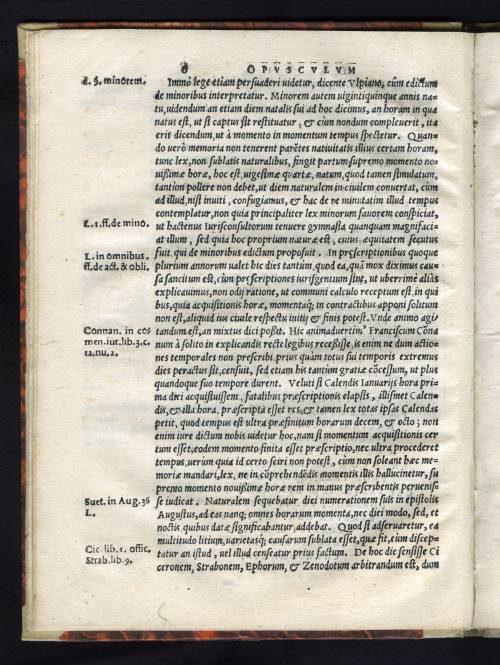 6 OPVSCVLVM
L. §. minorem.
Immò lege etiam persuaderi uidetur, dicente Vlpiano, cùm edictum
de minoribus interpretatur. Minorem autem uigintiquinque annis na
tu, uidendum an etiam diem natalis sui ad hoc dicimus, an horam in qua
natus est, ut si captus sit restituatur, & cùm nondum compleuerit, ita
erit dicendum, ut à momento in momentum tempus spectetur. Quan-
do uerò memoria non tenerent parētes natiuitatis illius certam horam,
tunc lex, non sublatis naturalibus, fingit partum supremo momento no-
uissimæ horæ, hoc est, uigesimæ quartæ, natum, quod tamen simulatum,
tantùm pollere non debet, ut diem naturalem in ciuilem conuertat, cùm
ad illud, nisi inuiti, confugiamus, & hac de re minutatim illud tempus
contemplatur, non quia principaliter lex minorum fauorem conspiciat,
L. 1. ff. de mino.
ut hactenus Iurisconsultorum tenuere gymnasia quanquam magnifaci-
at illum, sed quia hoc proprium naturæ est, cuius æquitatem secutus
fuit, qui de minoribus edictum proposuit. In præscriptionibus quoque
L. in omnibus.
ff. de act. & obli.
plurium annorum ualet hic dies tantùm, quod ea, quā mox diximus cau-
sa sancitum est, cùm præscriptiones iurisgentium sint, ut uberrimè aliàs
explicauimus, non odij ratione, ut communi calculo receptum est, in qui
bus, quia acquisitionis horæ, momentaq; in contractibus apponi solitum
non est, aliquid ius ciuile respectu initij & finis potest. Vnde animo agi-
Connan. in cō
men. iur. lib. 3. c.
12. nu. 2.
tandum est, an mixtus dici possit. Hic animaduertimº Franciscum Cōna
num à solito in explicandis recte legibus recessisse, is enim ne dum actio-
nes temporales non præscribi priusquàm totus sui temporis extremus
dies peractus sit, censuit, sed etiam his tantùm gratiæ cōcessum, ut plus
quandoque suo tempore durent. Veluti si Calendis Ianuarijs hora pri-
ma diei acquisiuissem, fatalibus præscriptionis elapsis, illismet Calen-
dis, & illa hora, præscripta esset res: & tamen lex totas ipsas Calendas
petit, quod tempus est ultra præfinitum horarum decem, & octo; non
enim iure dictum nobis uidetur hoc, nam si momentum acquisitionis cer
tum esset, eodem momento finita esset præscriptio, nec ultra procederet
tempus, uerùm quia id certo sciri non potest, cùm non soleant hæc me-
moriæ mandari, lex, ne in cōprehendēdis momentis illis hallucinetur, su
premo momento nouissimæ horæ rem in manus præscribentis peruenis-
Suet. in Aug. 36
L.
se iudicat. Naturalem sequebatur diei numerationem suis in epistolis
Augustus, ad eas nanq; omnes horarum momenta, nec diei modo, sed, et
noctis quibus datæ significabantur addebat. Quod si adseruaretur, ea
multitudo litium, uarietasq; causarum sublata esset, quæ fit, cùm discep-
Cic. lib. 1. offic.
Strab. lib. 9.
tatur an istud, uel illud censeatur prius factum. De hoc die sensisse Ci
ceronem, Strabonem, Ephorum, & Zenodotum arbitrandum est, dum